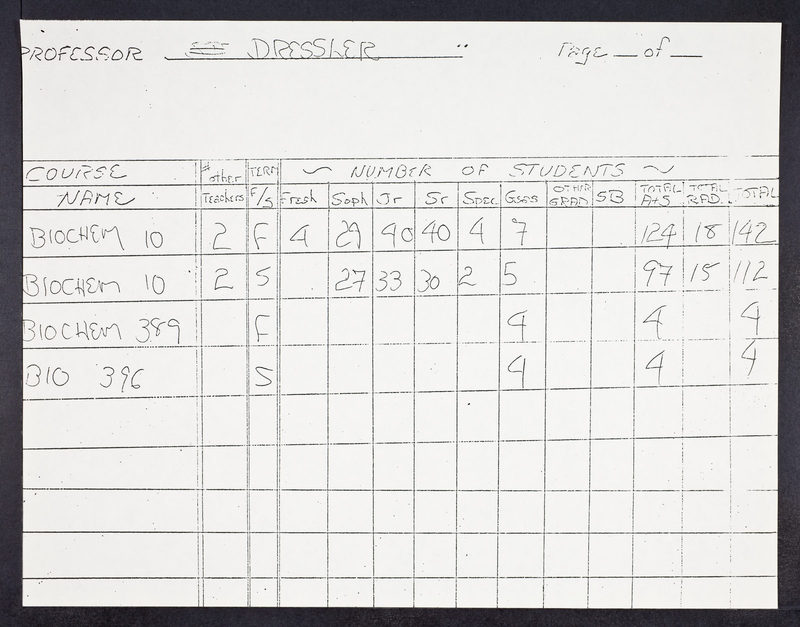 PROFESSOR DRESSLER Page __ of __
COURSE # other TERM ~ NUMBER OF STUDENTS ~
NAME Teachers F/S Fresh Soph Jr Sr Spec. Gsas OTHER GRAD SB TOTAL A+S TOTAL RAD. TOTAL
BIOCHEM 10 2 F 4 29 40 40 4 7 124 18 142
BIOCHEM 10 2 S 27 33 30 2 5 97 15 112
BIOCHEM 389 F 4 4 4
BIO 396 S 4 4 4